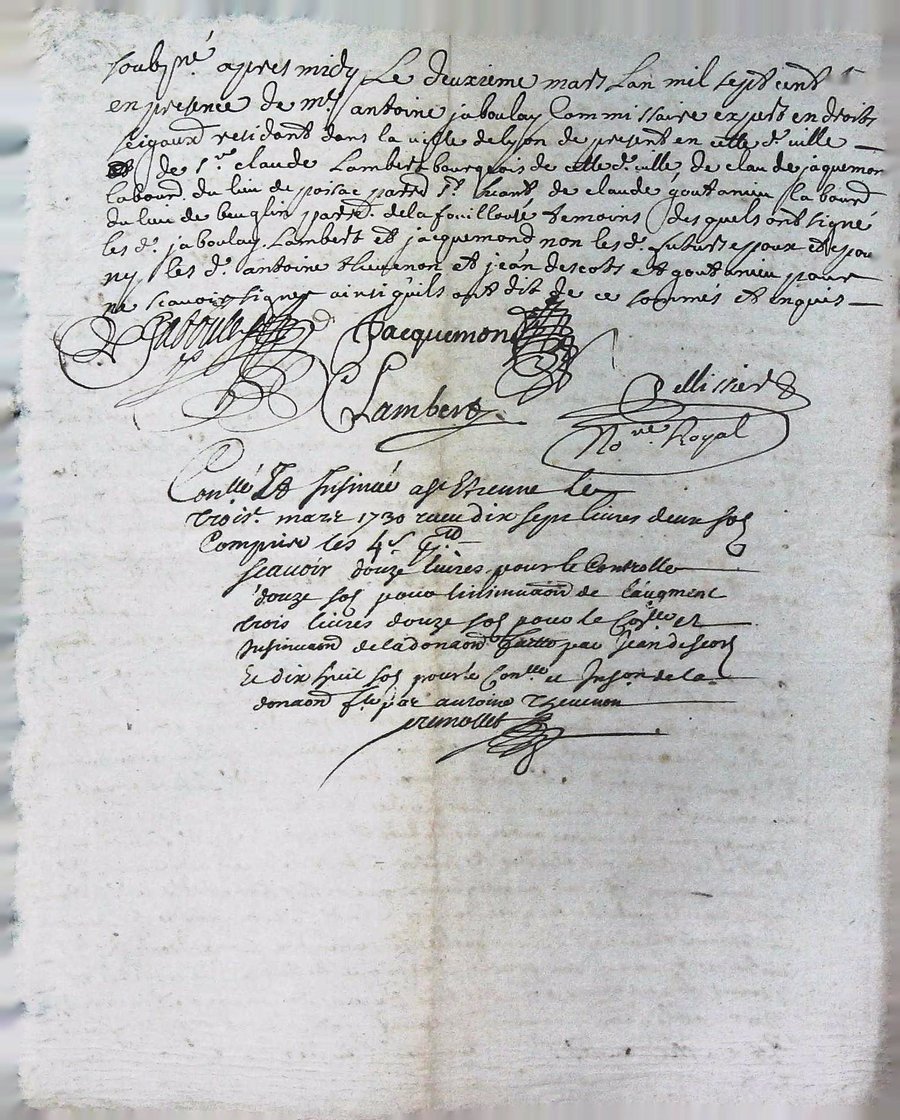 soubsné apres midy Le deuxieme mars Lan mil sept cent
en presence de me antoine jaboulay Commissaire expert en droits
seigaurd residant dans la ville de lyon de present en cette d. ville
et de Sr. claude Lambert bourgeois de cette d. ville, de claude jaquemon
labourd. du lieu de parrd. de claude goutanieu labourd
du lieu de beuglin parrd. de la fouillouse temoins desquels ont signé
les d. jaboulay, Lambert et jacquemond non les d. futurs epoux et epou
ny les d. antoine thevenon et jean descots et goutanieu pour
ne scavoir signer ainsi qu'ils ont dit de ce sommés et enquis
Jaboulay Jacquemond
Lambert Pellissier
Nore Royal
Conllé Et Insinué a St Etienne le
trois. mars 1730 receu dix sept livres deux sols
Compris les 4 s.
scavoir douze livres pour le Controlle
douze sols pour linsinuaon de laugment
trois livres douze sols pour le Conlle et
Insinuaon de la donaon faitte par Jean descots
Et dix huit sols pour le Conlle et Inson. de la
donaon fte par antoine Thevenon
premollet